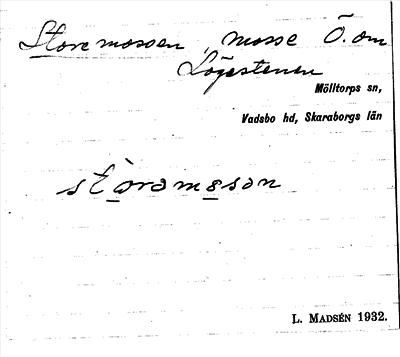 Storemossen, mosse Ö. om
Lögestenen
Mölltorps sn,
Vadsbo hd, Skaraborgs län
stòrəmɵsən
L. MADSÉN 1932.